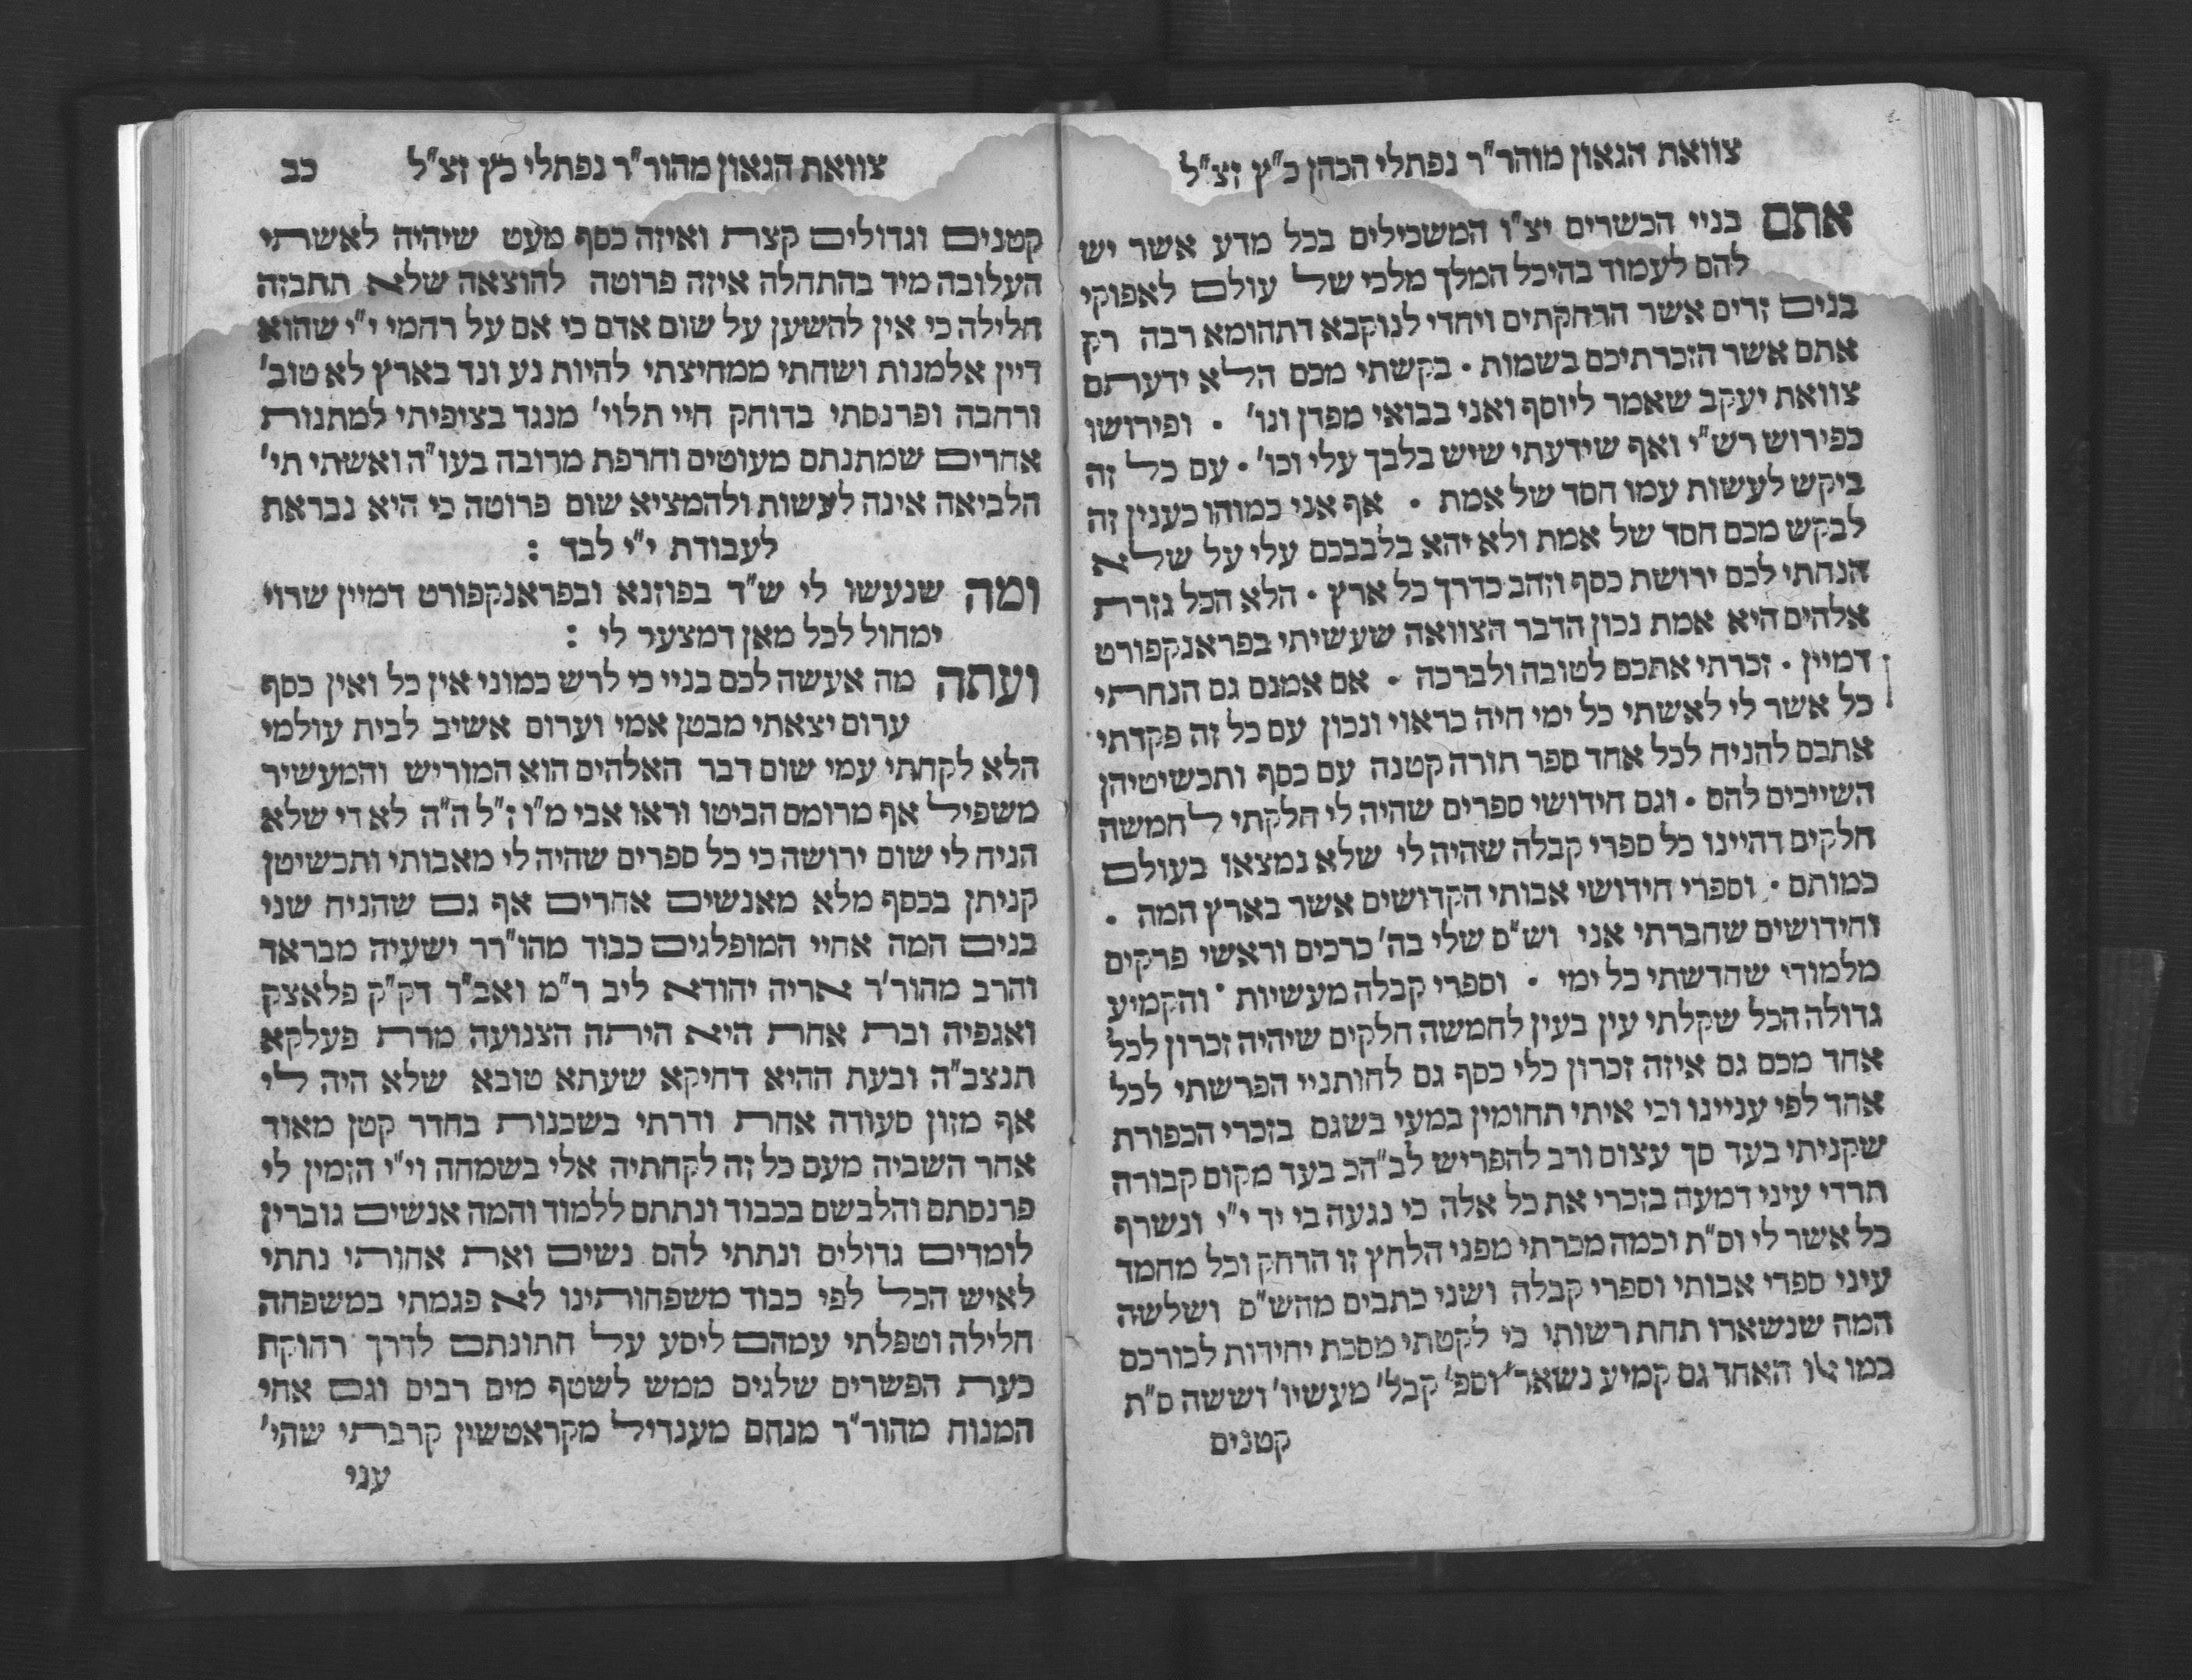 צוואת הגאון מוהר"ר נפתלי הכהן כ"ץ זצ"ל
אתם בניי הכשרים יצ"ו המשכילים בכל מדע אשר יש
להם לעמוד בהיכל המלך מלכי של עולם לאפוקי
בנים זרים אשר הרחקתים ויחדי לנוקבא דתהומא רבה רק
אתם אשר הזכרתיכם בשמות • בקשתי מכם הלא ידעתם
צוואת יעקב שאמר ליוסף ואני בבואי מפדן וגו' • ופירושו
כפירוש רש"י ואף שידעתי שיש בלבך עלי וכו' • עם כל זה
ביקש לעשות עמו חסד של אמת • אף אני כמוהו כענין זה
לבקש מכם חסד של אמת ולא יהא בלבבכם עלי על שלא
הנחתי לכם ירושת כסף וזהב כדרך כל ארץ • הלא הכל גזרת
אלהים היא אמת נכון הדבר הצוואה שעשיתי בפראנקפורט
דמיין • זכרתי אתכם לטובה ולברכה • אם אמנם גם הנחתי
כל אשר לי לאשתי כל ימי חיה כראוי ונכון עם כל זה פקדתי
אתכם להניח לכל אחד ספר תורה קטנה עם כסף ותכשיטיהן
השייכים להם • וגם חידושי ספרים שהיה לי חלקתי לחמשה
חלקים דהיינו כל ספרי קבלה שהיה לי שלא נמצאו בעולם
כמותם • וספרי חידושי אבותי הקדושים אשר בארץ המה •
וחידושים שחברתי אני וש"ס שלי בה' כרכים וראשי פרקים
מלמודי שהדשתי כל ימי • וספרי קבלה מעשיות • והקמיע
גדולה הכל שקלתי עין בעין לחמשה חלקים שיהיה זכרון לכל
אחד מכם גם איזה זכרון כלי כסף גם לחותניי הפרשתי לכל
אחד לפי עניינו וכי איתי תחומין במעי בשגם בזכרי הכפורת
שקניתי בעד סך עצום ורב להפריש לב"הכ בעד מקום קבורה
תרדי עיני דמעה בזכרי את כל אלה כי נגעה בי יד י"י ונשרף
כל אשר לי וס"ת וכמה מכרתי מפני הלחץ זו הדחק וכל מחמד
עיני ספרי אבותי וספרי קבלה ושני כתבים מהש"ס ושלשה
המה שנשארו תחת רשותי כי לקטתי מסכת יחידות לכורכם
כמו או האחד גם קמיע נשאר' וספ' קבל' מעשיו' וששה ס"ת
קטנים
צוואת הגאון מהור"ר נפתלי כץ זצ"ל כב
קטנים וגדולים קצת ואיזה כסף מעט שיהיה לאשתי
העלובה מיד בהתחלה איזה פרוטה להוצאה שלא תתבזה
חלילה כי אין להשען על שום אדם כי אם על רחמי י"י שהוא
דיין אלמנות ושחתי ממחיצתי להיות נע ונד בארץ לא טוב'
ורחבה ופרנסתי בדוחק חיי תלוי' מנגד בציפיתי למתנות
אחרים שמתנתם מעוטים וחרפת מרובה בעו"ה ואשתי תי'
הלביאה אינה לעשות ולהמציא שום פרוטה כי היא נבראת
לעבודת י"י לבד :
ומה שנעשו לי ש"ד בפוזנא ובפראנקפורט דמיין שרוי
ימחול לכל מאן דמצער לי :
ועתה מה אעשה לכם בניי כי לרש כמוני אין כל ואין כסף
ערום יצאתי מבטן אמי וערום אשיב לבית עולמי
הלא לקחתי עמי שום דבר האלהים הוא המוריש והמעשיר
משפיל אף מרומם הביטו וראו אבי מ"ו ז"ל ה"ה לא די שלא
הניח לי שום ירושה כי כל ספרים שהיה לי מאבותי ותכשיטן
קניתן בכסף מלא מאנשים אחרים אף גם שהניח שני
בנים המה אחיי המופלגים כבוד מהו"רר ישעיה מבראד
והרב מהור'ר אריה יהודא ליב ר"מ ואב"ד דק"ק פלאצק
ואגפיה ובת אחת היא היתה הצנועה מרת פעלקא
תנצב"ה ובעת ההיא דחיקא שעתא טובא שלא היה לי
אף מזון סעודה אחת ודרתי בשכנות בחדר קטן מאוד
אחר השביה מעם כל זה לקחתיה אלי בשמחה וי"י הזמין לי
פרנסתם והלבשם בכבוד ונתתם ללמוד והמה אנשים גוברין
לומדים גדולים ונתתי להם נשים ואת אחותי נתתי
לאיש הכל לפי כבוד משפחותינו לא פגמתי במשפחה
חלילה וטפלתי עמהם ליסע על חתונתם לדרך רחוקה
כעת הפשרים שלגים ממש לשטף מים רבים וגם אחי
המנוח מהור"ר מנחם מענדיל מקראטשין קרבתי שהי'
עני